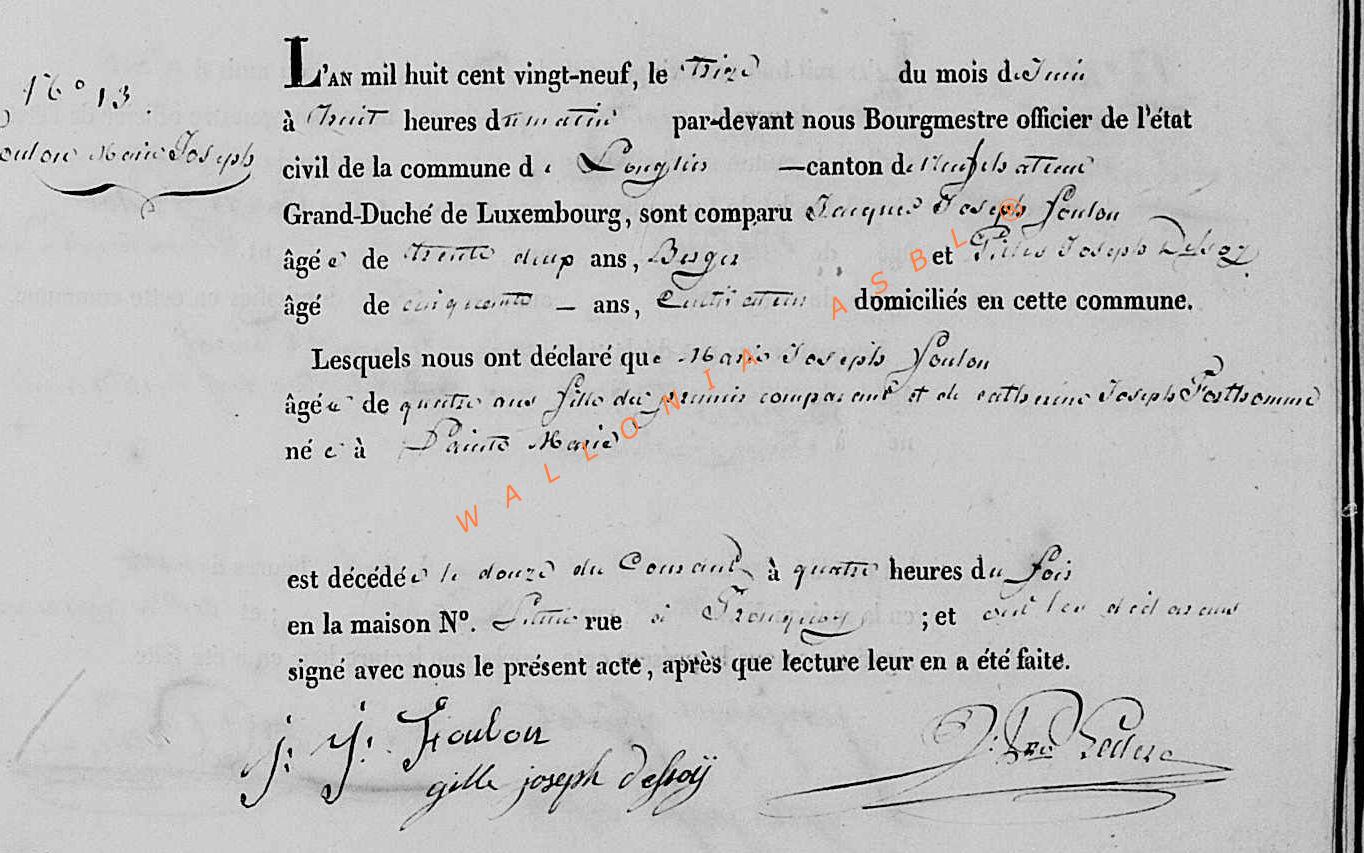 N° 13
oulon Marie Joseph
L'AN mil huit cent vingt-neuf, le treize du mois de Juin
à huit heures du matin par-devant nous Bourgmestre officier de l'état
civil de la commune de Longlier — canton de Neufchateau
Grand-Duché de Luxembourg, sont comparu Jacques Joseph foulon
âgé de trente deux ans, Berger et Gilles Joseph Defroÿ
âgé de cinquante — ans, Cultivateur domiciliés en cette commune.
Lesquels nous ont déclaré que Marie Joseph foulon
âgée de quatre ans fille du premier comparant et de catherine Joseph Forthomme
née à Sainte Marie
est décédée le douze du Courant à quatre heures du soir
en la maison N°. rue à Tronquoy ; et ont les déclarans
signé avec nous le présent acte, après que lecture leur en a été faite.
J: J: Foulon
gille joseph defroÿ
WALLONIA ASBL ®